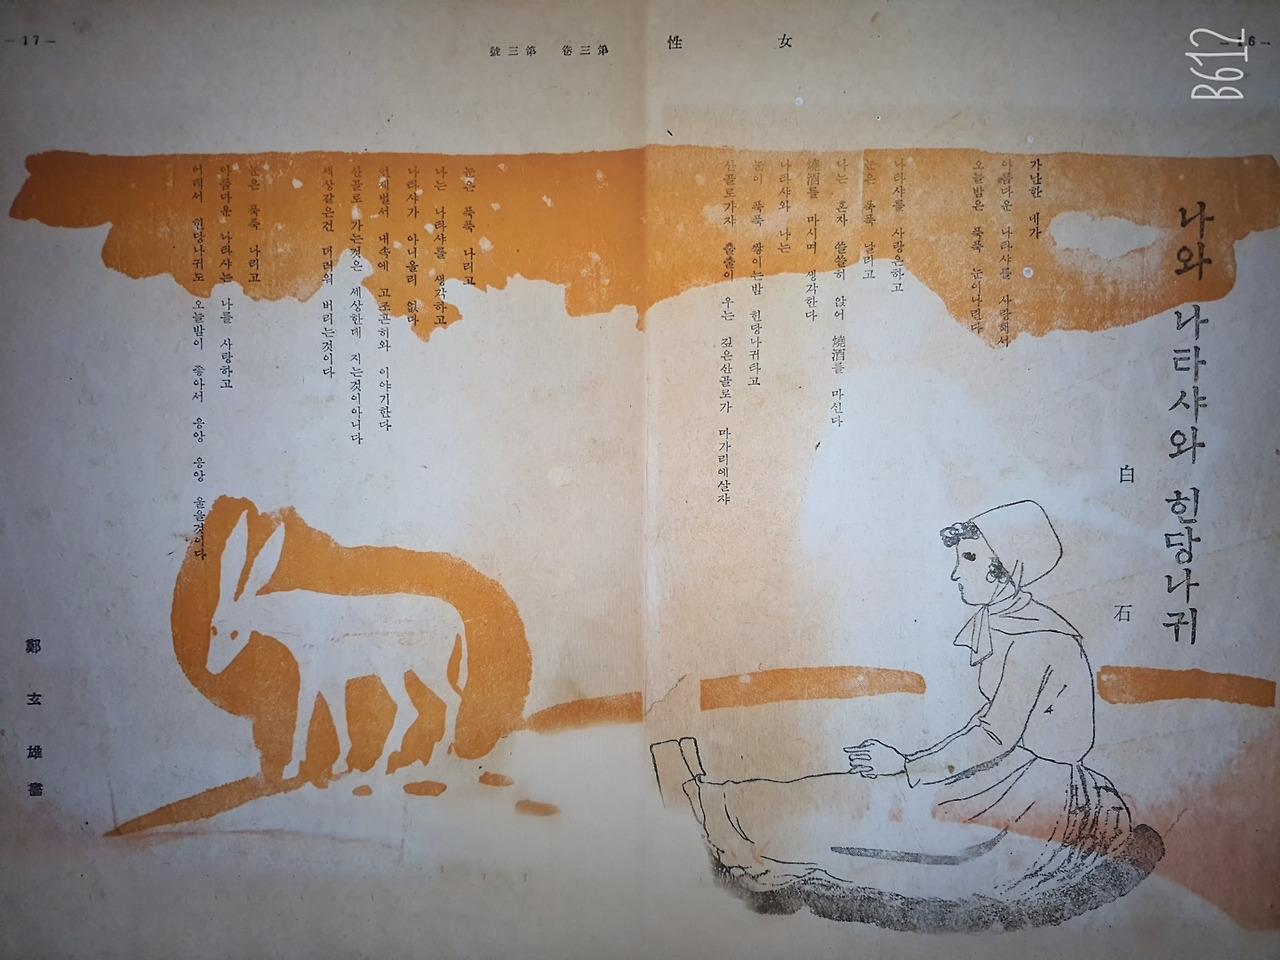 女性
第三卷 第三號
— 16 —
B612
나와 나타샤와 힌당나귀
白石
가난한 내가
아름다운 나타샤를 사랑해서
오늘밤은 푹푹 눈이나린다
나타샤를 사랑은하고
눈은 푹푹 날리고
나는 혼자 쓸쓸히 앉어 燒酒를 마신다
燒酒를 마시며 생각한다
나타샤와 나는
눈이 푹푹 쌓이는밤 힌당나귀타고
산골로가쟈 출출이 우는 깊은산골로가 마가리에살쟈
— 17 —
눈은 푹푹 나리고
나는 나타샤를 생각하고
나타샤가 아니올리 없다
언제벌서 내속에 고조곤히와 이야기한다
산골로 가는것은 세상한데 지는것이아니다
세상같은건 더러워 버리는것이다
눈은 푹푹 나리고
아름다운 나타샤는 나를 사랑하고
어데서 힌당나귀도 오늘밤이 좋아서 응앙 응앙 울을것이다
鄭玄雄畵